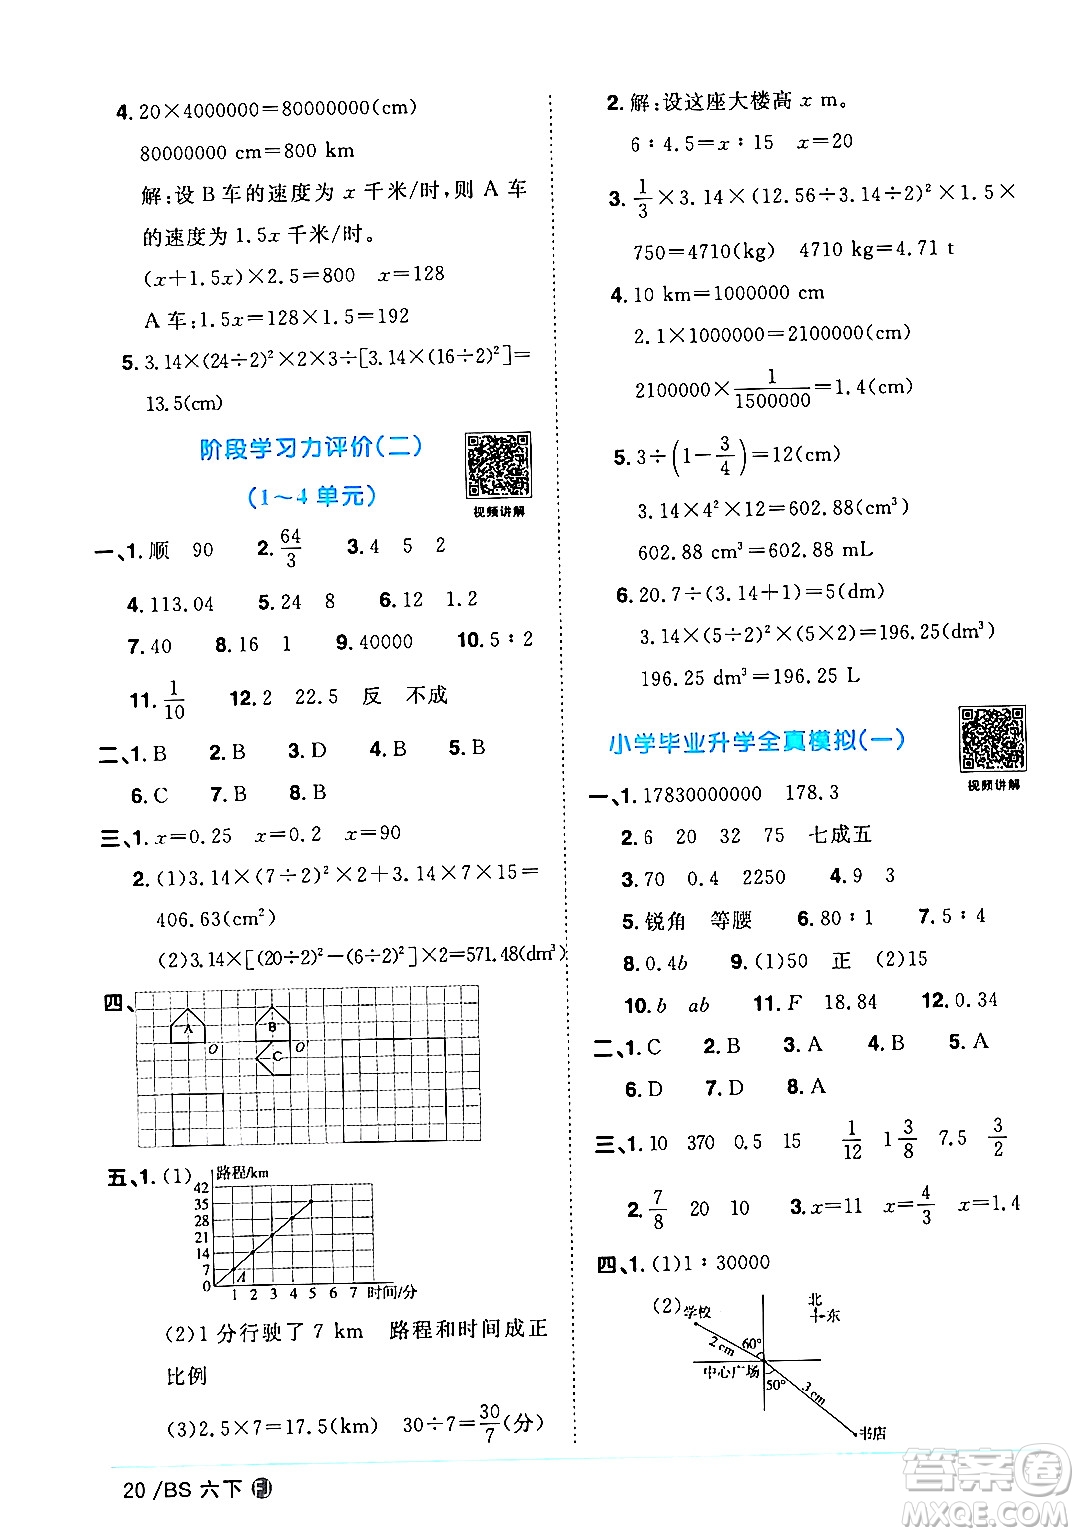 4. 20×4000000=80000000(cm)
80000000 cm=800 km
解:设 B 车的速度为 x 千米/时,则 A 车
的速度为 1.5x 千米/时。
(x+1.5x)×2.5=800 x=128
A 车:1.5x=128×1.5=192
5. 3.14×(24÷2)²×2×3÷[3.14×(16÷2)²]=
13.5(cm)
阶段学习力评价(二)
(1～4 单元)
视频讲解
一、1. 顺 90 2. 64/3 3. 4 5 2
4. 113.04 5. 24 8 6. 12 1.2
7. 40 8. 16 1 9. 40000 10. 5∶2
11. 1/10 12. 2 22.5 反 不成
二、1. B 2. B 3. D 4. B 5. B
6. C 7. B 8. B
三、1. x=0.25 x=0.2 x=90
2. (1)3.14×(7÷2)²×2+3.14×7×15=
406.63(cm²)
(2)3.14×[(20÷2)²−(6÷2)²]×2=571.48(dm³)
四、
A B O O′ C
五、1. (1) 路程/km
42
35
28
21
14
7
0
A
1 2 3 4 5 6 7 时间/分
(2)1 分行驶了 7 km 路程和时间成正
比例
(3)2.5×7=17.5(km) 30÷7=30/7(分)
20 /BS 六下
2. 解:设这座大楼高 x m。
6∶4.5=x∶15 x=20
3. 1/3×3.14×(12.56÷3.14÷2)²×1.5×
750=4710(kg) 4710 kg=4.71 t
4. 10 km=1000000 cm
2.1×1000000=2100000(cm)
2100000×1/1500000=1.4(cm)
5. 3÷(1−3/4)=12(cm)
3.14×4²×12=602.88(cm³)
602.88 cm³=602.88 mL
6. 20.7÷(3.14+1)=5(dm)
3.14×(5÷2)²×(5×2)=196.25(dm³)
196.25 dm³=196.25 L
小学毕业升学全真模拟(一)
视频讲解
一、1. 17830000000 178.3
2. 6 20 32 75 七成五
3. 70 0.4 2250 4. 9 3
5. 锐角 等腰 6. 80∶1 7. 5∶4
8. 0.4b 9. (1)50 正 (2)15
10. b ab 11. F 18.84 12. 0.34
二、1. C 2. B 3. A 4. B 5. A
6. D 7. D 8. A
三、1. 10 370 0.5 15 1/12 1 3/8 7.5 3/2
2. 7/8 20 10 3. x=11 x=4/3 x=1.4
四、1. (1)1∶30000
(2)
学校
北
东
60°
2 cm
中心广场
50°
3 cm
书店
答案圈
MXQE.COM